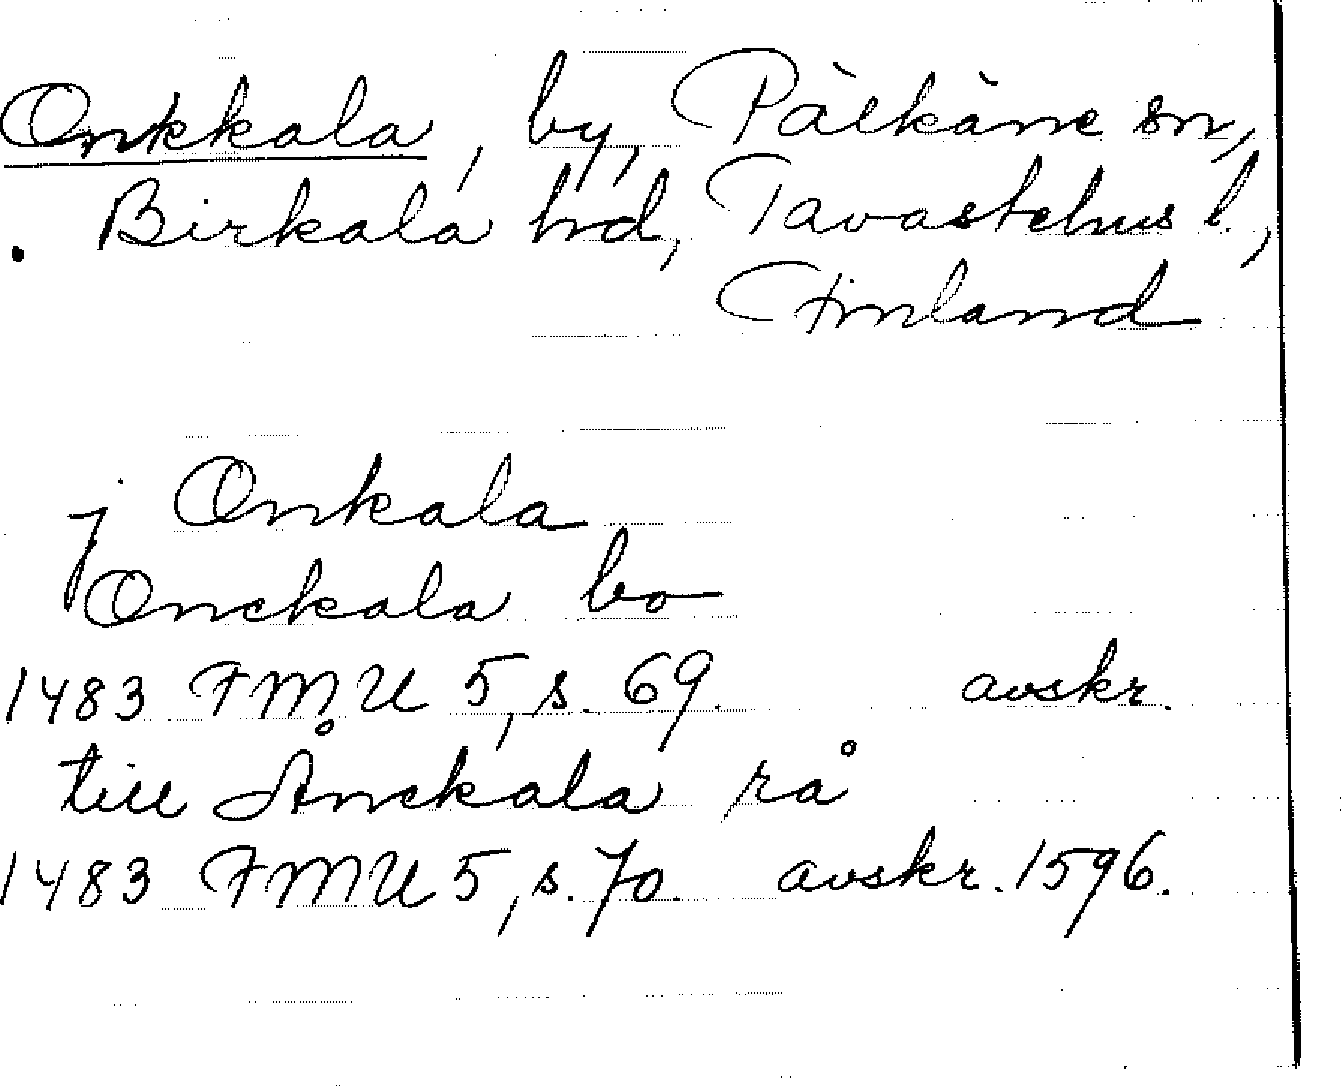 Onkkala, by, Pälkäne sn,
Birkala hd, Tavastehus l.,
Finland
j Onkala
Onckala bo
1483 FMU 5, s. 69. avskr.
till Ånckala rå
1483 FMU 5, s. 70. avskr. 1596.